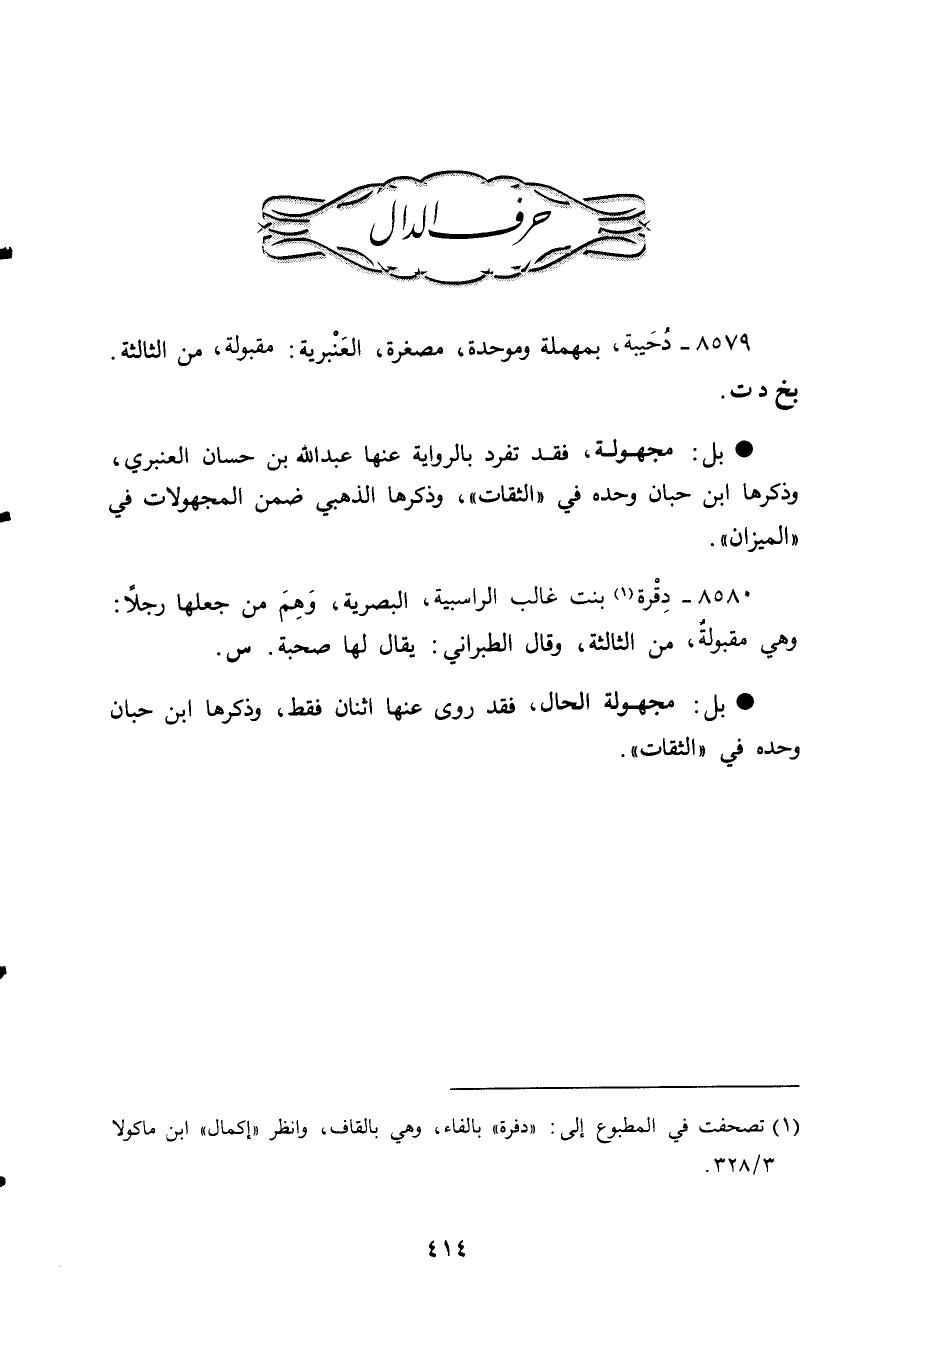 حرف الدال
٨٥٧٩ ـ دُحَيبة، بمهملة وموحدة، مصغرة، العَنْبرية: مقبولة، من الثالثة.
بخ د ت.
● بل: مجهولة، فقد تفرد بالرواية عنها عبدالله بن حسان العنبري،
وذكرها ابن حبان وحده في «الثقات»، وذكرها الذهبي ضمن المجهولات في
«الميزان».
٨٥٨٠ ـ دِقْرة(١) بنت غالب الراسبية، البصرية، وَهِمَ من جعلها رجلًا:
وهي مقبولةٌ، من الثالثة، وقال الطبراني: يقال لها صحبة. س.
● بل: مجهولة الحال، فقد روى عنها اثنان فقط، وذكرها ابن حبان
وحده في «الثقات».
(١) تصحفت في المطبوع إلى: «دفرة» بالفاء، وهي بالقاف، وانظر «إكمال» ابن ماكولا
٣٢٨/٣.
٤١٤